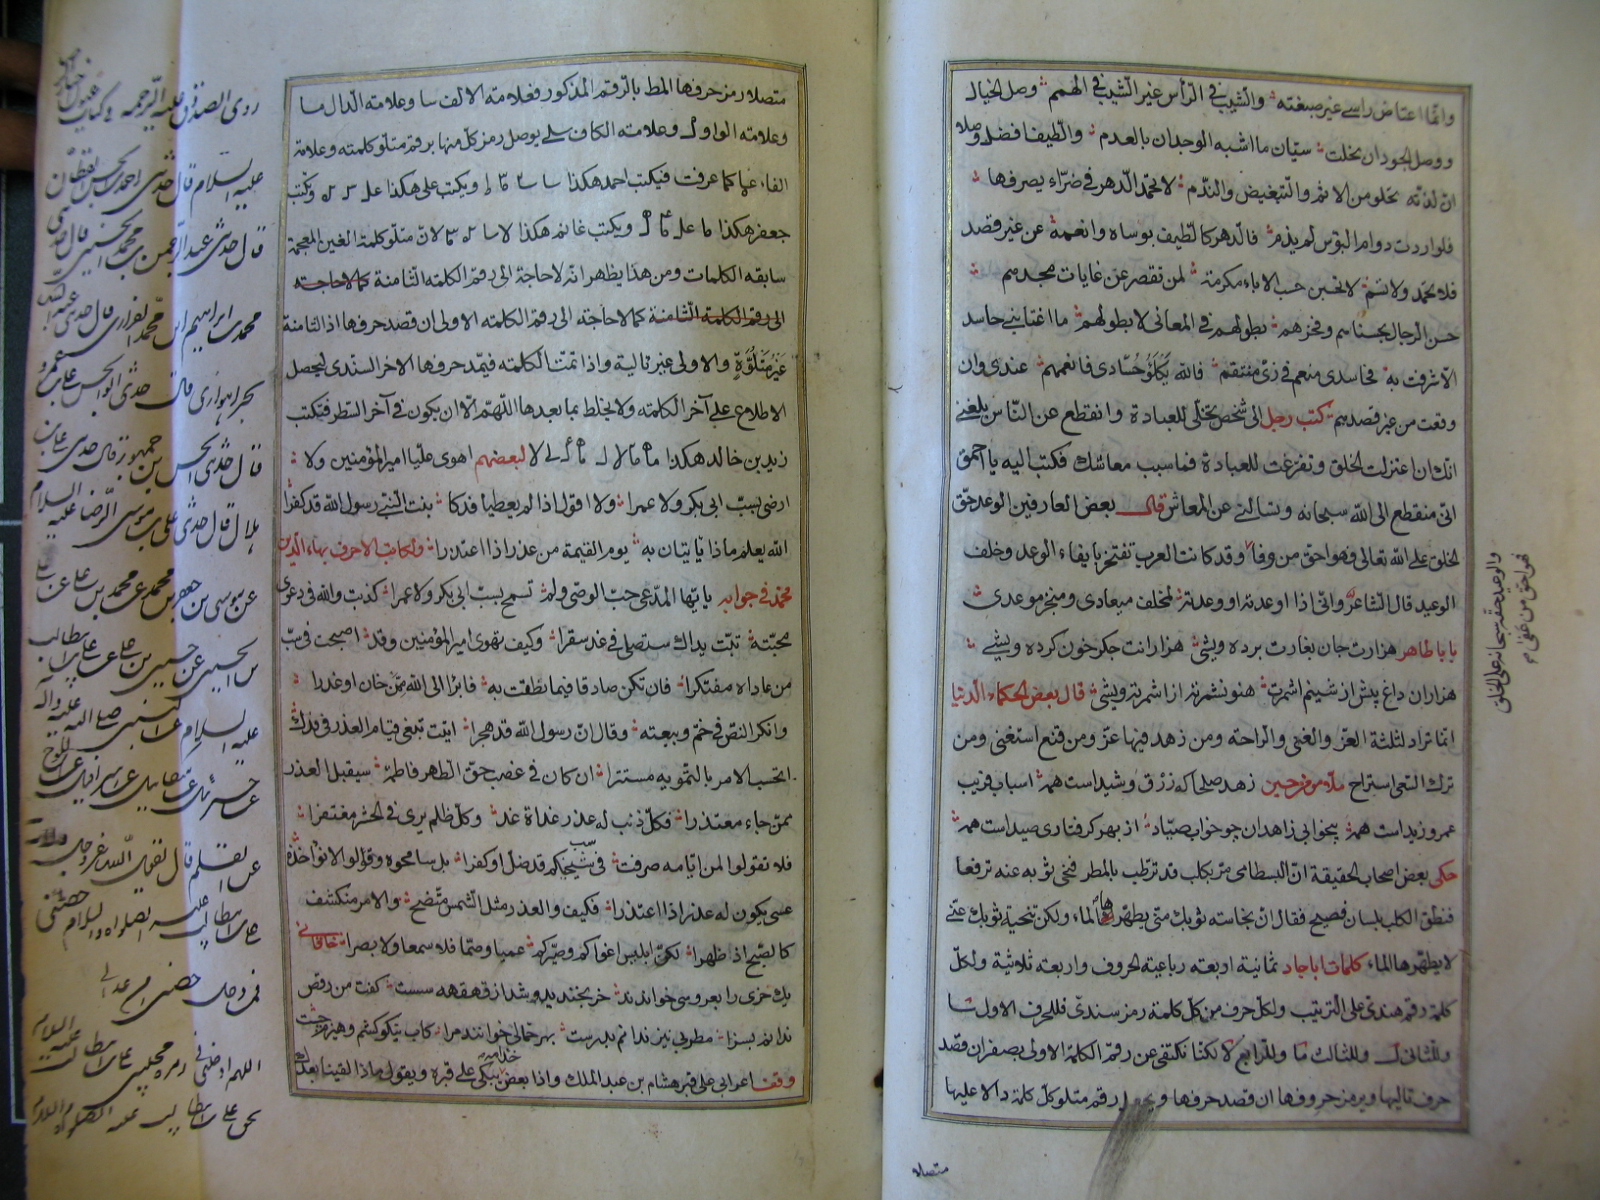 وانما اعتاض راسي غير صبغته والشيب في الرأس غير الشيب في الهمم وصل الخيال
ووصل الخود ان بخلت سيّان ما اشبه الوجدان بالعدم والطيف افضل وصلا
ان لذته تخلو من الاثم والتبغيض والندم لا تحمد الدهر في ضرّاء يصرفها
فلو اردت دوام البؤس لم يدم فالدهر كالطيف بوساه وانعمه عن غير قصد
فلا تحمد ولا تلم لا تحسبن حسب الاباء مكرمة لمن تقصر عن غايات مجدهم
حسن الرجال بحسناهم وفخرهم بطولهم في المعالي لا بطولهم ما اغتابني حاسد
الا شرفت به فحاسدي منعم في زىّ منتقم فالله يكلؤ حسّادي فانعمهم عندي وان
وقعت من غير قصدهم كتب رجل الى شخص تخلّى للعبادة وانقطع عن الناس بلغني
انك اعتزلت الخلق وتفرغت للعبادة فما سبب معاشك فكتب اليه يا احمق
انى منقطع الى الله سبحانه وتسالني عن المعاش قال بعض العارفين الوعد حق
الخلق على الله تعالى فهو احق من وفا وقد كانت العرب تفتخر بايفاء الوعد وخلف
الوعيد قال الشاعر وانى اذا اوعدته او وعدته لمخلف ميعادي ومنجز موعدي
بابا طاهر هزارت جان بغارت برده ويشى هزارانت جكر خون كرده ويشى
هزاران داغ پيش از شيشم اشمرت هنو نشمرته از اشمرته ويشى قال بعض الحكماء الدنيا
انما تراد لثلثة العز والغنى والراحة ومن زهد فيها عز ومن قنع استغنى ومن
ترك السعى استراح ملا مؤمن حسين زهد صلحا كه زرق وشيداست همه اسباب فريب
عمرو زيد است همه بيخوابى زاهدان چو خواب صيّاد از بهر كرفتارى صيد است همه
حكى بعض اصحاب الحقيقة ان البسطامى مر بكلب قد ترطب بالمطر فنحى ثوبه عنه ترفعا
فنطق الكلب بلسان فصيح فقال ان نجاسة ثوبك متى يطهرها الماء ولكن تنحية ثوبك عني
لا يطهرها الماء كلمات اباجاد ثمانية اربعة رباعية الحروف واربعة ثلاثية ولكل
كلمة رقم هندى على الترتيب ولكل حرف من كل كلمة رمز سندى فللحرف الاول
وللثانى وللثالث وللرابع لكنا نكتفى عن رقم الكلمة الاولى بصفر ان قصد
حرف تاليها ويرمز حروفها ان قصد حرفها رقم متلو كل كلمة دالا عليها
متصلا
والوعيد حقه سبحانه على الخلق
فهو احق من عفى م
متصلا رمز حرفها المط بالرقم المذكور فعلامة الالف سا وعلامة الدال سا
وعلامة الواو وعلامة الكاف يوصل رمز كل منها برقم متلو كلمته وعلامة
الفاء كما عرفت فيكتب احمد هكذا ويكتب على هكذا ونكتب
جعفر هكذا ويكتب غانم هكذا لان متلو كلمة الغين المعجمة
سابقه الكلمات ومن هذا يظهر انه لا حاجة الى رقم الكلمة الثامنة كما لا حاجة
الى رقم الكلمة الثامنة كما لا حاجة الى رقم الكلمة الاولى ان قصد حرفها اذ الثامنة
غير متلوّة والاولى غير تالية واذا تمت الكلمة فيمد حرفها الاخر السندى ليحصل
الاطلاع على آخر الكلمة ولا يخلط بما بعدها اللهم الا ان يكون في آخر السطر فتكتب
زيد بن خالد هكذا لبعضهم اهوى عليا امير المؤمنين ولا
ارضى بسب ابى بكر ولا عمرا ولا اقول اذا لم يعطيا فدكا بنت النبي رسول الله قد كفرا
الله يعلم ماذا ياتيان به يوم القيمة من عذر اذا اعتذرا ولكاتب الاحرف بهاء الدين
محمد في جوابه يا ايها المدعى حب الوصى ولم تسمح بسب ابى بكر ولا عمرا كذبت والله في دعوى
محبته تبت يداك ستصلى في غد سقرا وكيف تهوى امير المؤمنين وقد اصبحت في سب
من عاداه مفتكرا فان تكن صادقا فيما نطقت به فابرأ الى الله ممن خان او غدرا
وانكر النص في خم وبيعته وقال ان رسول الله قد هجرا اتيت تبغى قيام العذر في فدك
اتحسب الامر بالتمويه مستترا ان كان في غصب حق الطهر فاطمة سيقبل العذر
ممن جاء معتذرا فكل ذنب له عذر غداة غد وكل ظلم يرى في الحشر مغتفرا
فلا تقولوا لمن ايامه صرفت في سب شيخيكم قد ضل او كفرا بل سامحوه وقولوا لا نؤاخذه
عسى يكون له عذر اذا اعتذرا فكيف والعذر مثل الشمس متضح والامر منكشف
كالصبح اذ ظهرا لكن ابليس اغواكم وصيركم عميا وصما فلا سمعا ولا بصرا خاقانى
يك خرى را بعروسى خواندند خر بخنديد وشد از قهقهه سست كفت من رقص
ندانم بسزا مطربى نيز ندانم بدرست بهر حمالى خوانند مرا كاب نيكو كشم وهيزم چست
وقف اعرابى على قبر هشام بن عبد الملك واذا بعض خدامه يبكى على قبره ويقول ماذا لقينا بعدك
روى الصدوق عليه الرحمه في كتاب عيون اخبار الرضا
عليه السلام قال حدثنى احمد بن الحسن القطان
قال حدثنى عبد الرحمن بن محمد الحسينى قال حدثنى
محمد بن ابراهيم بن محمد الفزارى قال حدثنى عبد الله
بحر اهوازى قال حدثنى ابو الحسن على بن عمرو
قال حدثنى الحسن بن جمهور قال حدثنى على بن
بلال قال حدثنى على بن موسى الرضا عليه السلام
عن موسى بن جعفر عن محمد بن على عن على
بن الحسين عن حسين بن على عن على بن ابيطالب
عليه السلام عن النبى صلى الله عليه واله
عن جبرئيل عن ميكائيل عن اسرافيل عن اللوح
عن القلم قال يقول الله عز وجل ولاية
على بن ابيطالب عليه الصلواة والسلام حصنى
فمن دخل حصنى امن عذابى
اللهم ادخلنى زمرة محبى على بن ابيطالب عليه السلام
بحق على بن ابيطالب عليه الصلوة والسلام